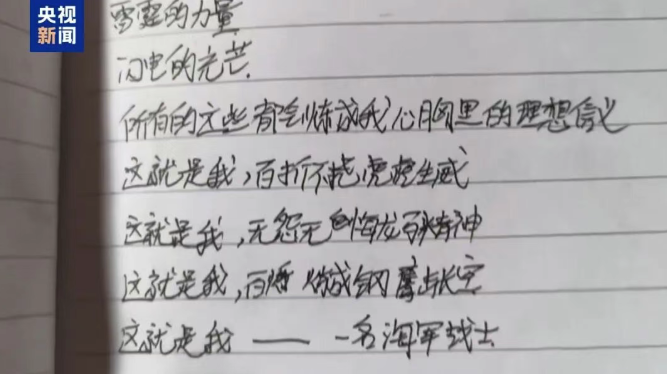 央视
新闻
雷霆的力量
闪电的光芒
所有的这些都会炼成我心胸里的理想信义
这就是我,百折不挠虎虎生威
这就是我,无怨无悔龙马精神
这就是我,百炼成钢 搏长空
这就是我 —— 一名海军战士